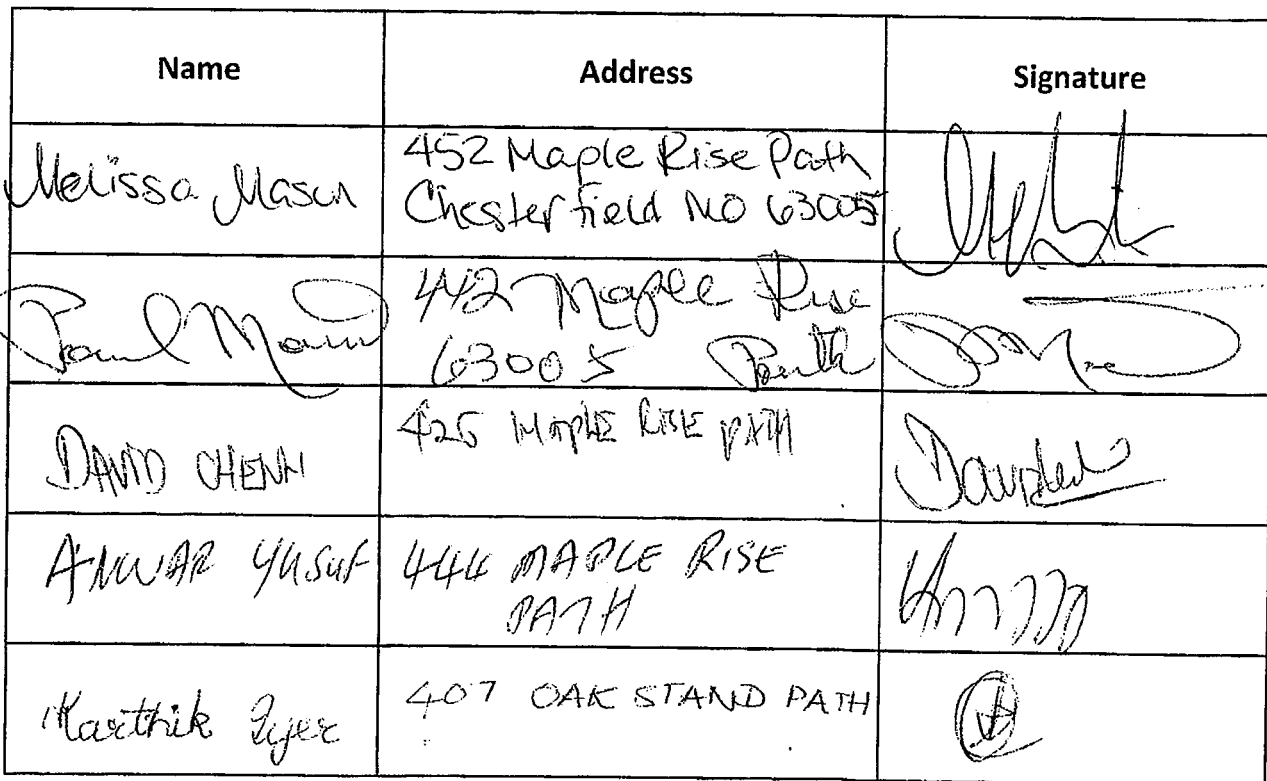 Name Address Signature
Melissa Mason
452 Maple Rise Path
Chesterfield MO 63005
Paul
442 Maple Rise
63005 Path
DAVID CHENN
425 MAPLE RISE PATH
ANWAR YUSUF
444 MAPLE RISE
PATH
Karthik Iyer
407 OAK STAND PATH